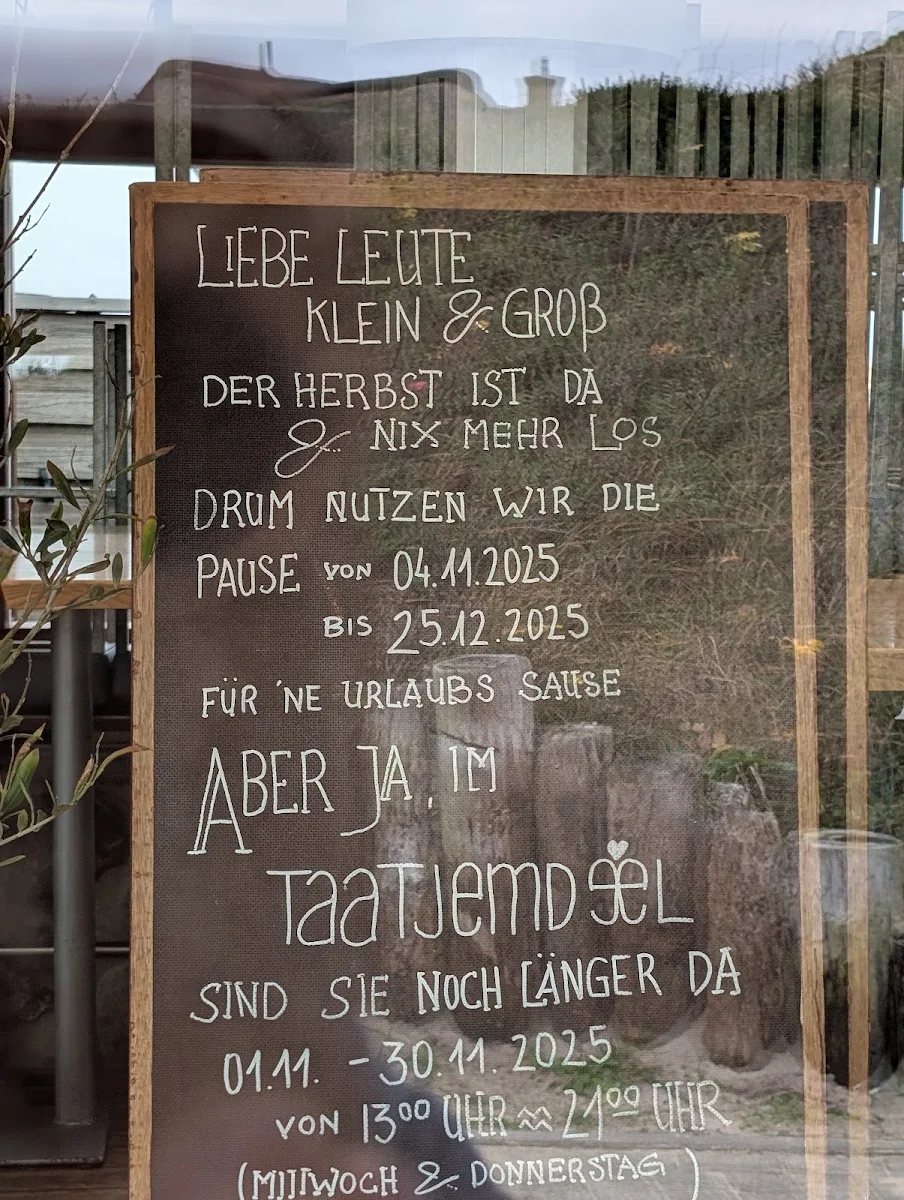 LIEBE LEUTE
KLEIN & GROß
DER HERBST IST DA
& NIX MEHR LOS
DRUM NUTZEN WIR DIE
PAUSE VON 04.11.2025
BIS 25.12.2025
FÜR 'NE URLAUBS SAUSE
ABER JA, IM
TAATJEMDEEL
SIND SIE NOCH LÄNGER DA
01.11. - 30.11.2025
VON 13⁰⁰ UHR ≈ 21⁰⁰ UHR
(MITTWOCH & DONNERSTAG)